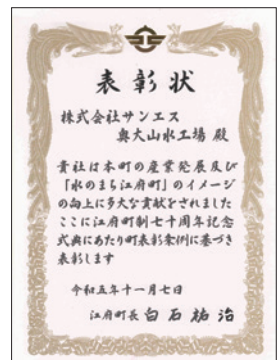 表彰状
株式会社サンエス
奥大山水工場 殿
貴社は本町の産業発展及び
「水のまち江府町」のイメージ
の向上に多大な貢献をされました
ここに江府町制七十周年記念
式典にあたり町表彰条例に基づき
表彰します
令和五年十一月七日
江府町長 白石祐治